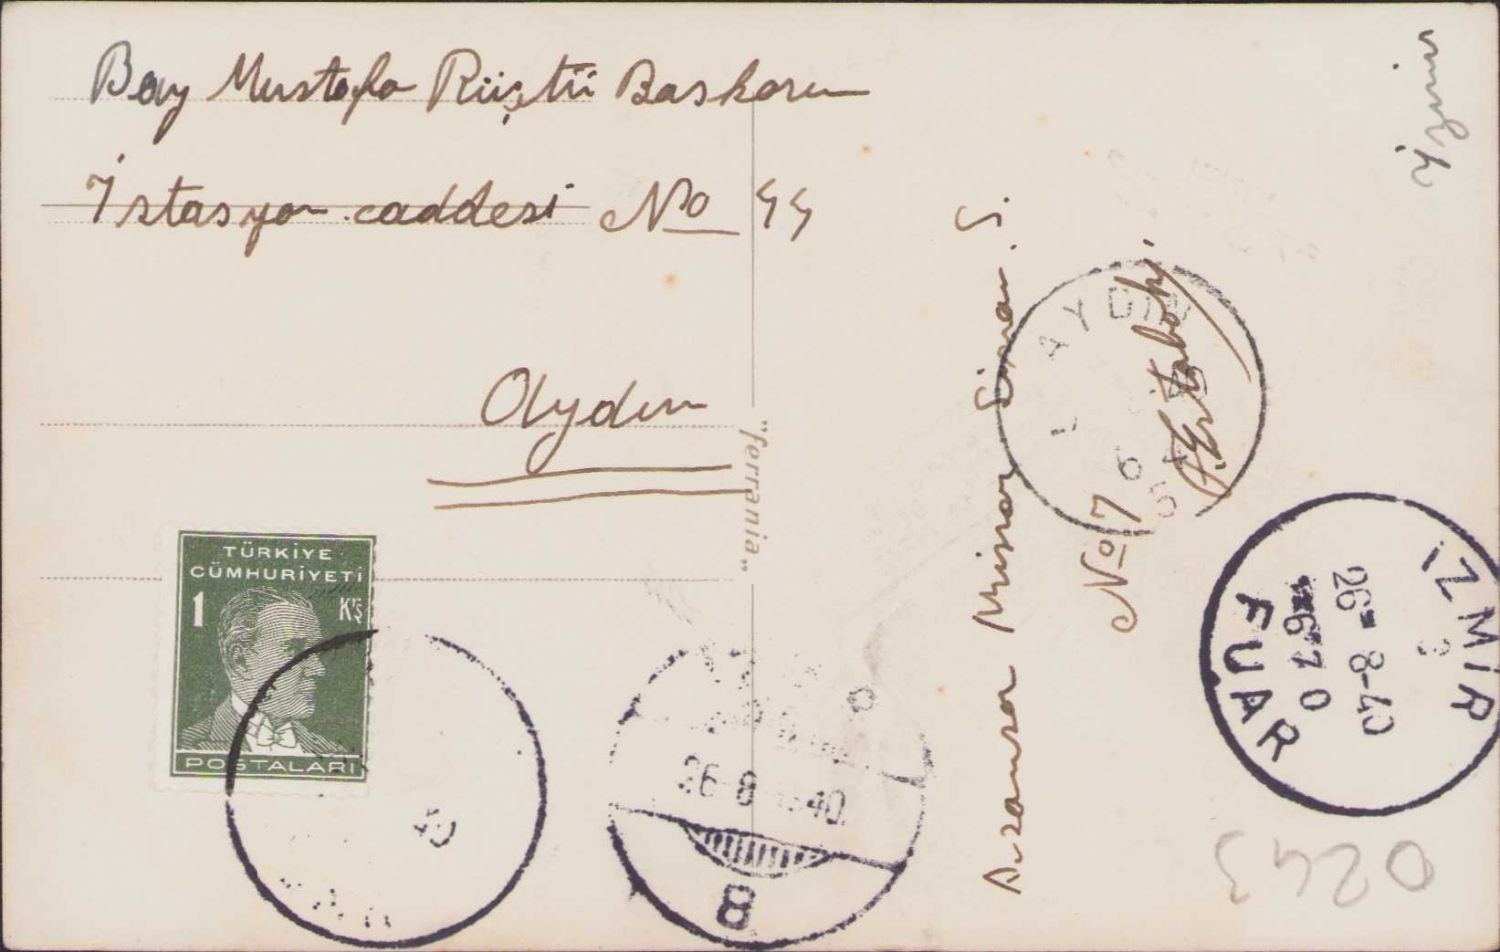 Bay Mustafa Rüştü Baskan
İstasyon caddesi No 44
Aydın
"ferrania"
TÜRKİYE
CÜMHURİYETİ
1 Krş
POSTALARI
40
26-8 40
8
Mimar Sinan S.
No 7
A. Ertabak
AYDIN
İZMİR
26-8-40
FUAR
İzmir
0243